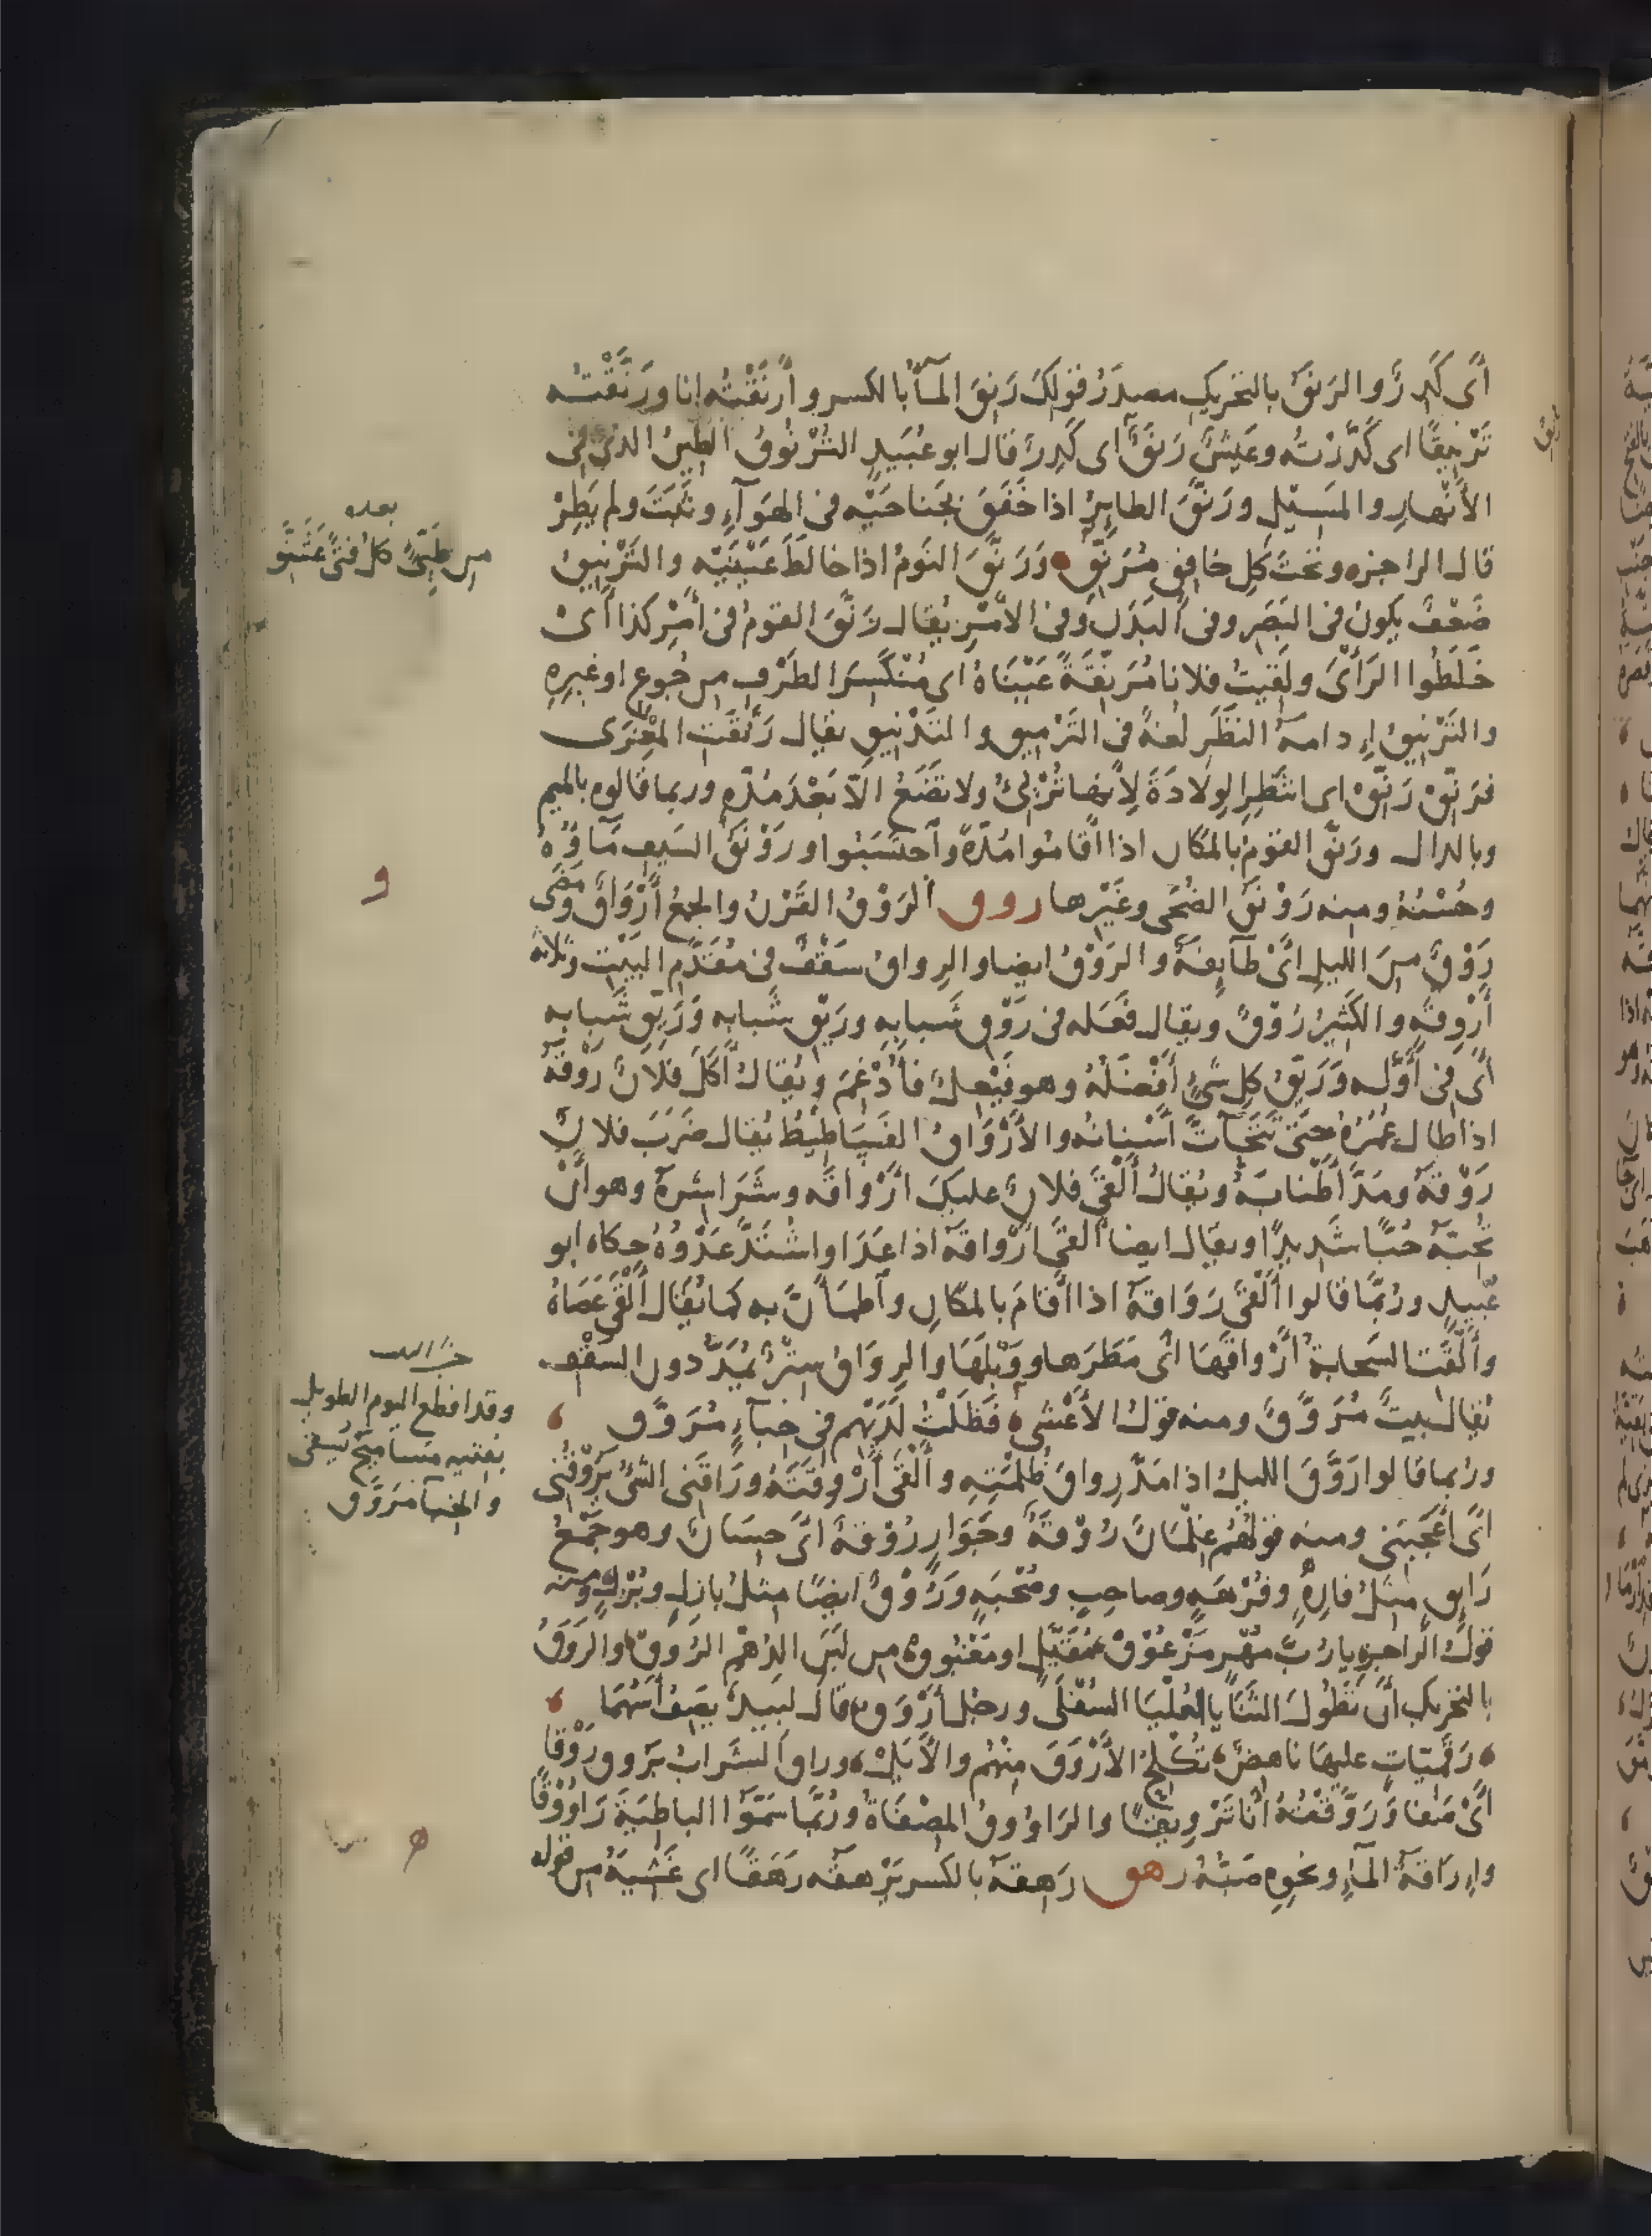 أَى كَدِرٌ والرَنَقُ بالتحريك مصدَرُ قولِكَ رَنِقَ المآءُ بالكسر وأَرْنَقْتُه انا ورَنَّقْتُه
تَرْنِيقًا اى كَدَّرْتُه وعَيْشٌ رَنِقٌ اى كَدِرٌ قال ابو عُبَيدٍ التُرْنُوقُ الطِينُ الذى فى
الأَنْهارِ والمَسِيْلِ ورَنَّقَ الطايِرُ اذا خَفَقَ بجَناحَيْه فى الهوَآءِ وثَبَتَ ولم يَطِرْ
قال الراجزه وتحْتَ كلِ خافِقٍ مُرَنِّقِ ورَنَّقَ النَومُ اذا خالَطَ عَيْنَيْه والتَرْنِيقُ
ضَعْفٌ يكونُ فى البَصَرِ وفى البَدَنِ وفى الأَمْرِ يُقال رَنَّقَ القومُ فى أَمْرِ كذا أَىْ
خَلَطُوا الرَأْىَ ولَقِيتُ فلانا مُرَنِّقَةً عَيْنَاهُ اى مُنْكَسِرَ الطَرْفِ من جُوعٍ او غيرِهِ
والتَرْنِيقُ إِدامةُ النظَرِ لغةٌ فى التَرْمِيقِ والتَدْنِيقِ يقال رَنَّقَتِ المِعْزَى
فرَنِّقْ رَنِّقْ اى انتَظِر الوِلَادَةَ لأنها تُرْئِى ولا تَضَعُ الّا بَعْدَ مُدّةٍ وربما قالوه بالميم
وبالدال ورَنَّقَ القومُ بالمكان اذا أَقامُوا مُدّةً وأحتَبَسُوا ورَوْنَقُ السَيفِ مآؤُهُ
وحُسْنُهُ ومنه رَوْنَقُ الضُحَى وغَيْرِها روق الرَوْقُ القَرْنُ والجمعُ أَرْوَاقٌ ومَضَى
رَوْقٌ منَ الليلِ اىْ طآيِفةٌ والرَوْقُ ايضا والرِواقُ سَقْفٌ فى مُقَدَّمِ البَيْتِ وثلاثة
أَرْوِقةٍ والكَثيرُ رُوْقٌ ويقال فعَله فى رَوْقِ شَبابِهِ ورَيْقِ شَبابِه ورَيِّقِ شَبابِه
أَى فى أَوَّله ورَيِّقُ كلِ شَىْءٍ أَفْضَلُهُ وهو فَيْعِلٌ فأُدْغِمَ ويُقال أَكَلَ فلَانٌ رَوْقَهُ
اذا طال عُمْرُهُ حتى تَتَحآتَّ أَسْنانُه والأَرْوَاقُ الفَسَاطِيْطُ يُقال ضَرَبَ فلانٌ
رَوْقَهُ ومَدَّ أَطْنابَهُ ويُقالُ أَلْقَى فلانٌ عليكَ أَرْوَاقَه وشَرَاشِرَهُ وهو أَنْ
تُحِبَّهُ حُبًّا شَدِيدًا ويقال ايضا أَلْقَى أَرْوَاقَهُ اذا عَدَا واشْتَدَّ عَدْوُهُ حكاه ابو
عُبيدٍ ورُبَّما قالوا أَلْقَى رَوَاقَهُ اذا أَقامَ بالمكانِ وأطمَأَنَّ به كما يُقال أَلْقَى عَصَاهُ
وأَلْقَتِ السَحابةُ أَرْوَاقَهَا أَى مَطَرَها ووَبْلَهَا والرِوَاقُ سِتْرٌ يُمَدُّ دون السَقْفِ
يُقال بيتٌ مُرَوَّقٌ ومنه قولُ الأَعْشى فظَلّتْ لَدَيْهم فى خِبآءٍ مُرَوَّقِ
ورُبما قالوا رَوَّقَ الليلُ اذا مَدَّ رِواقَ ظُلْمَتِهِ وأَلْقَى أَرْوِقَتَهُ ورَاقَنى الشىْءُ يَرُوْقُنى
اى أَعْجَبَنى ومنه قولُهُم غِلْمَانٌ رُوْقَةٌ وجَوَارٍ رُوْقةٌ أَىْ حِسَانٌ وهو جَمْعُ
رَايِقٍ مثلُ فارِهٍ وفُرْهَةٍ وصاحِبٍ وصُحْبةٍ ورُوْقٌ ايضًا مثلُ بازِلٍ وبُزْلٍ ومنه
قولُ الراجزِ يا رُبَّ مُهْرٍ مَزْعُوْقْ مُقَيَّلٍ او مَغْبُوقْ من لَبَنِ الدُهْمِ الرُوقْ والرَوَقُ
بالتحريك أَن تَطُولَ الثنَايا العُلْيَا السُفْلَى ورجُل أَرْوَقُ قال لبيدٌ يَصِفُ أَسْهُمًا
رَقَمِيّاتٍ عليها ناهضٌ تُكْلِحُ الأَرْوَقَ مِنْهُم والأَيَلّ وراق الشَرابُ يَروق رَوْقًا
أَىْ صَفا ورَوَّقْتُهُ أَنا تَرْوِيقًا والرَاوُوقُ المِصْفَاةُ ورُبَّما سَمَّوا الباطِيَةَ رَاوُوْقًا
وإِرَاقَةُ المآءِ ونحوِهِ صَبُّهُ رهق رَهِقهُ بالكسر يَرْهَقُه رَهَقًا اى غَشِيَهُ من قوله
بعده
من طَيِّئٍ كلُ فَتًى عَشَنَّقِ
و
وقد اقطع اليوم الطويل
بفتيه مساميح تسقى
والخباء مروّق
ه